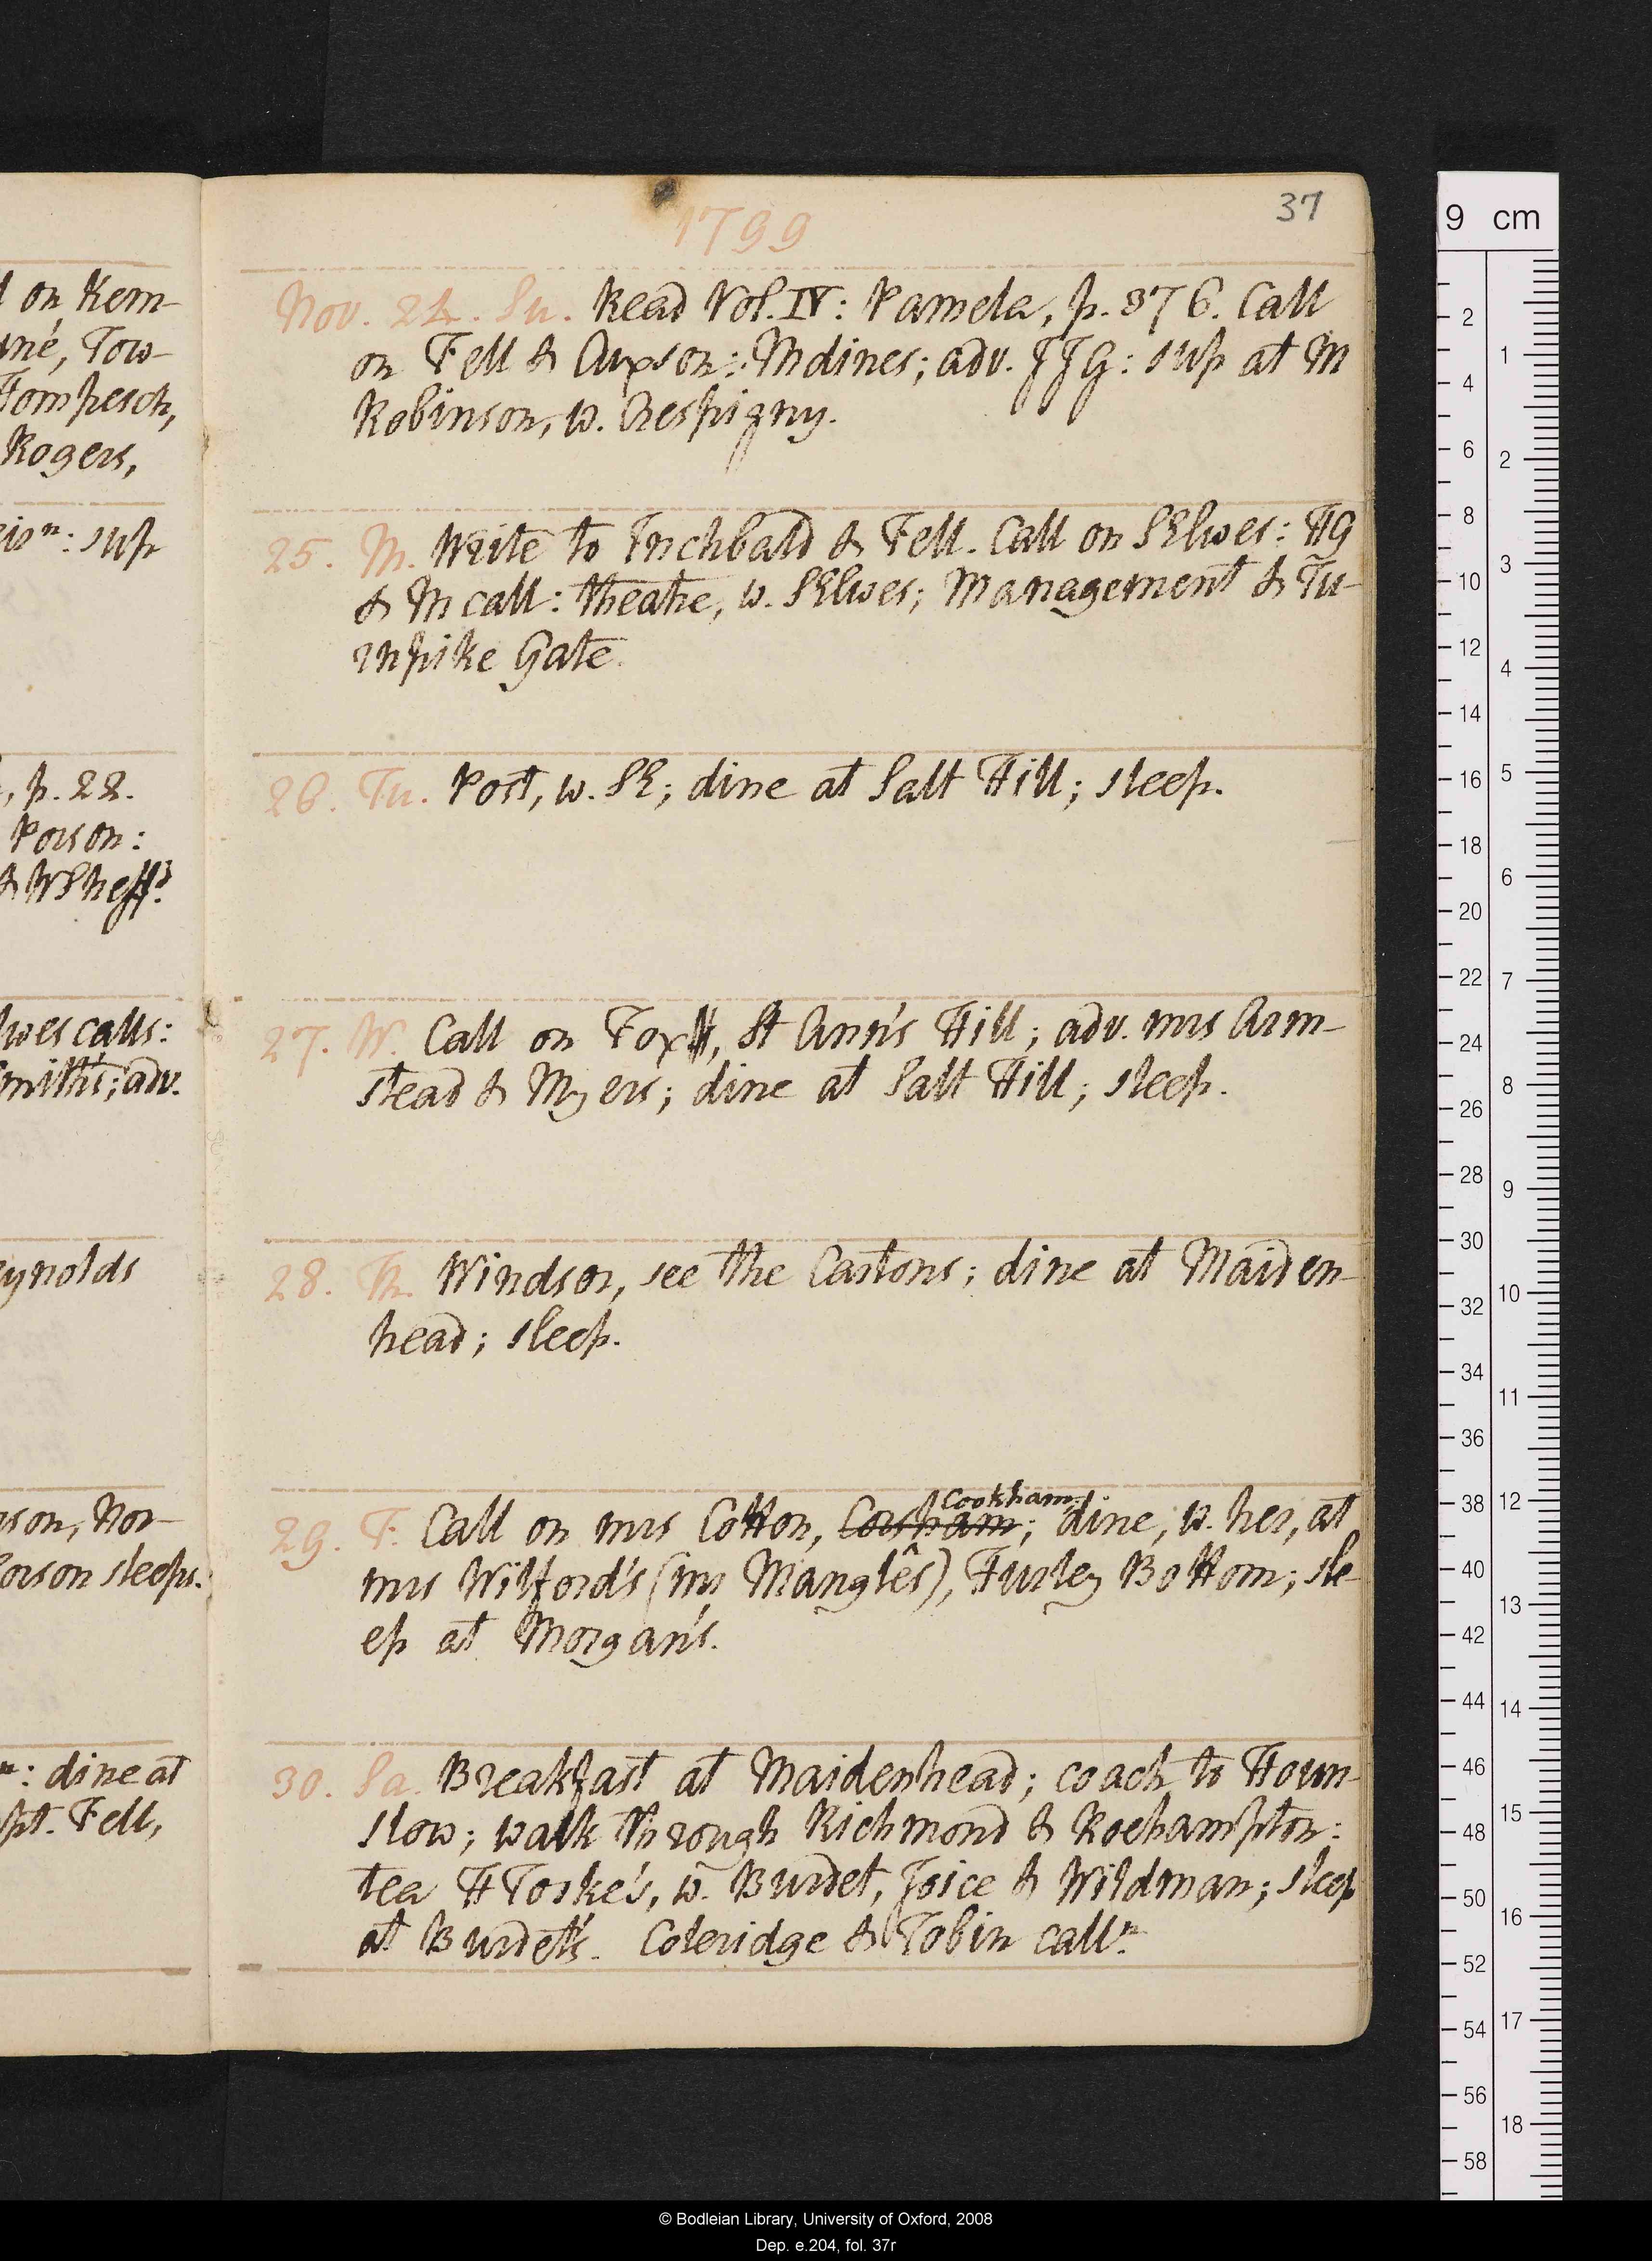 37
1799
Nov. 24. Su. Read Vol. IV: Pamela, p. 376. Call
on Fell & Arpson: M dines; adv. JJG: sup at M
Robinson, w. Crespigny.
25. M. Write to Inchbald & Fell. Call on S Elwes: HG
& M call: theatre, w. S Elwes; Management & Tu-
rnpike Gate.
26. Tu. Post, w. SE; dine at Salt Hill; sleep.
27. W. Call on Fox, St Ann's Hill; adv. mrs Arm-
stead & Myers; dine at Salt Hill; sleep.
28. Th. Windsor, see the Cartons; dine at Maiden-
head; sleep.
Cookham
29. F. Call on mrs Cotton, Corsham; dine, w. her, at
mrs Wilford's (mrs Manglês), Hurley Bottom; sle-
ep at Morgan's.
30. Sa. Breakfast at Maidenhead; coach to Houn-
slow; walk through Richmond & Roehampton:
tea H Tooke's, w. Burdet, Joice & Wildman; sleep
at Burdet's. Coleridge & Tobin calln.
on Kem-
uné, Tow-
Hompesch,
Rogers,
isn: sup
, p. 22.
Porson:
& W Sheffd.
lwes calls:
mith's; adv.
eynolds
son, Nor-
orson sleeps.
n: dine at
pt. Fell,
9 cm
2
4
6
8
10
12
14
16
18
20
22
24
26
28
30
32
34
36
38
40
42
44
46
48
50
52
54
56
58
1
2
3
4
5
6
7
8
9
10
11
12
13
14
15
16
17
18
© Bodleian Library, University of Oxford, 2008
Dep. e.204, fol. 37r